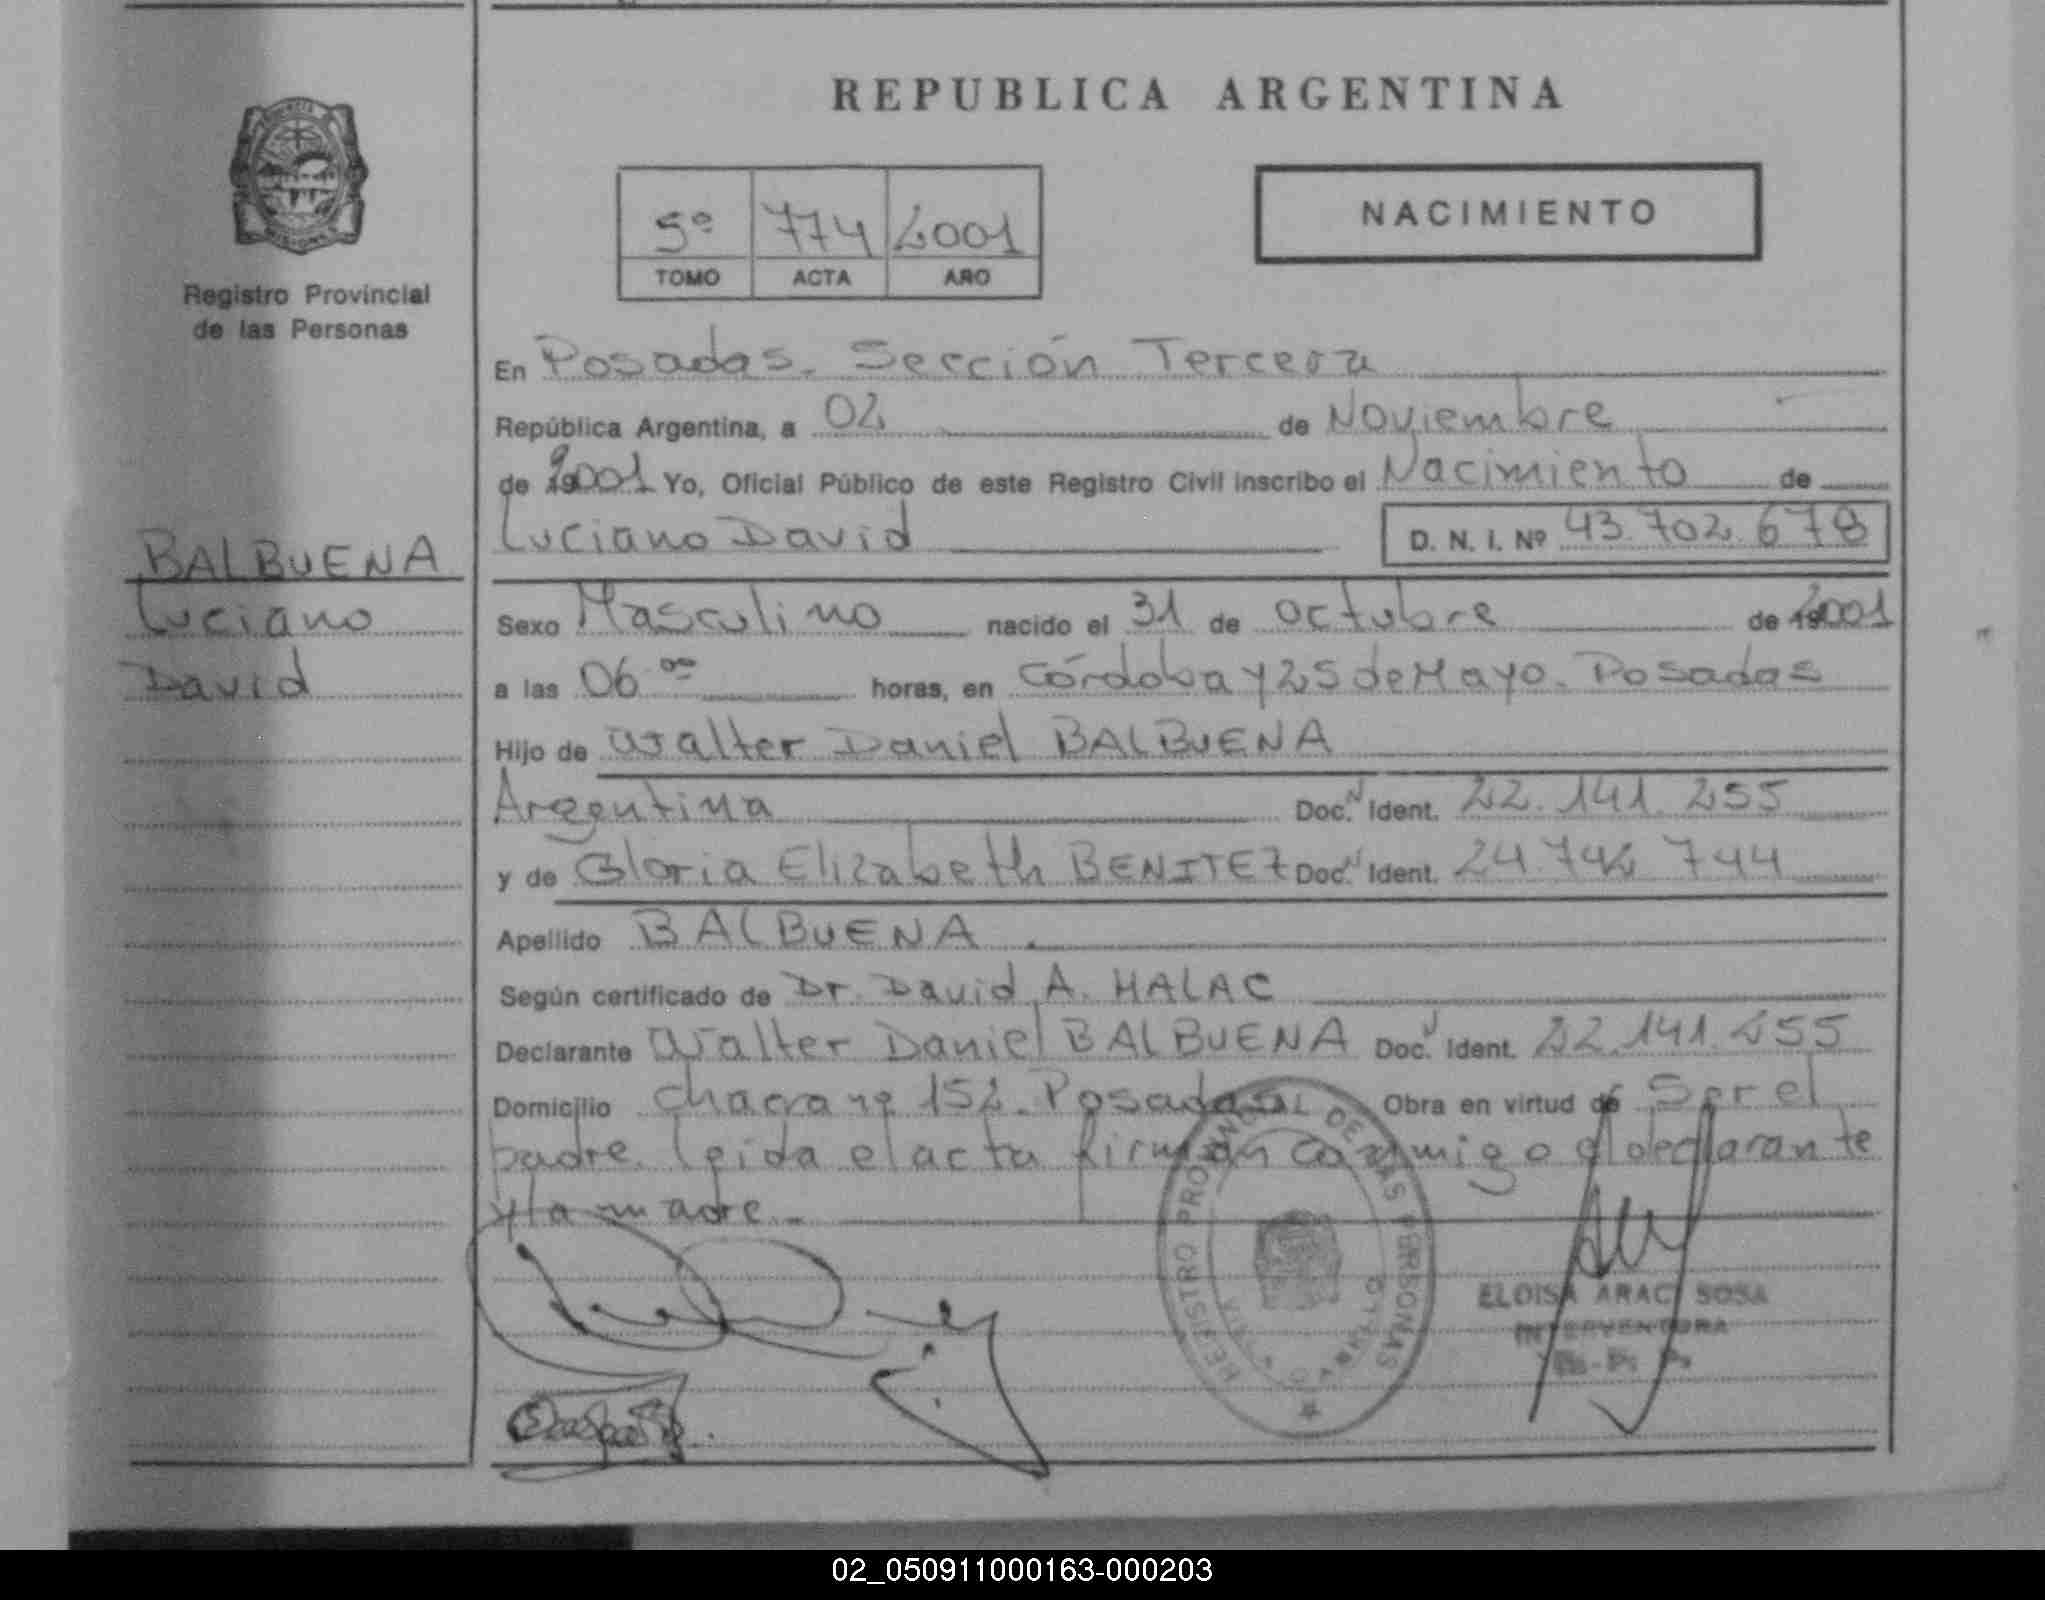 REPUBLICA ARGENTINA
5º 774 2001
TOMO ACTA AÑO
NACIMIENTO
Registro Provincial
de las Personas
En Posadas. Sección Tercera
República Argentina, a 02 de Noviembre
de 2001 Yo, Oficial Público de este Registro Civil inscribo el Nacimiento de
Luciano David D. N. I. Nº 43.702.678
BALBUENA
Luciano
David
Sexo Masculino nacido el 31 de octubre de 2001
a las 06 oo horas, en Córdoba y 25 de Mayo. Posadas
Hijo de Walter Daniel BALBUENA
Argentina Doc. N Ident. 22.141.255
y de Gloria Elizabeth BENITEZ Doc. N Ident. 24.742.744
Apellido BALBUENA
Según certificado de Dr. David A. HALAC
Declarante Walter Daniel BALBUENA Doc. N Ident. 22.141.255
Domicilio chacra nº 152. Posadas Obra en virtud de Ser el
padre. leida el acta firman conmigo el declarante
y la madre.-
REGISTRO PROVINCIAL DE LAS PERSONAS
ELOISA ARACI SOSA
INTERVENTORA
02_050911000163-000203